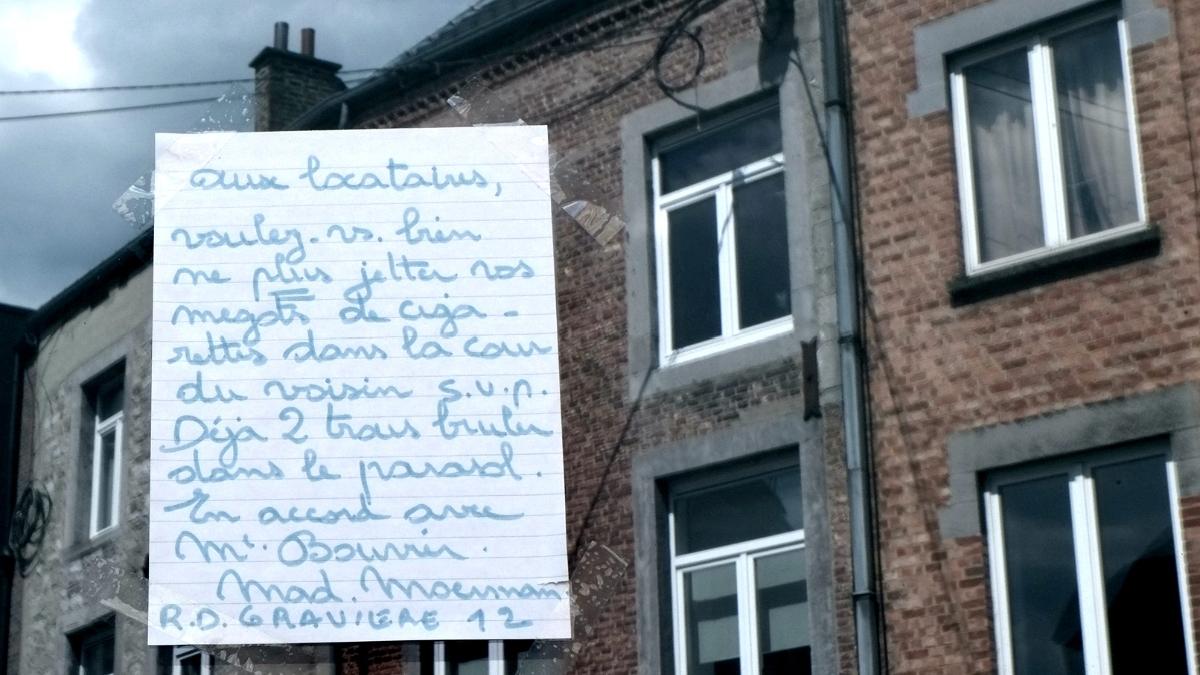 Aux locataires,
voulez-vs. bien
ne plus jetter vos
megots de ciga-
rettes dans la cour
du voisin s.v.p.
Déja 2 trous bruler
dans le parasol.
En accord avec
Mr. Bouvrir.
Mad. Moerman.
R.D. GRAVIERE 12